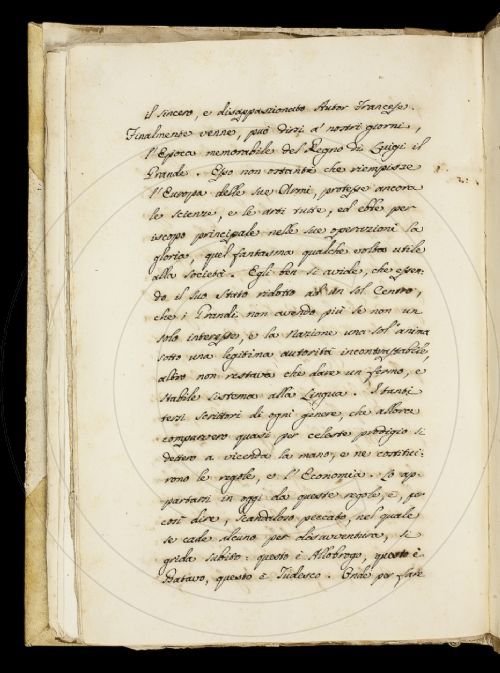 il sincero, e disappassionato Autor Francese.
Finalmente venne, può dirsi a' nostri giorni,
l'Epoca memorabile del Regno di Luigi il
Grande. Esso non ostante che riempisse
l'Europa delle sue Armi, protesse ancora
le scienze, e le arti tutte, ed ebbe per
iscopo principale nelle sue operazioni la
gloria, quel fantasma qualche volta utile
alla società. Egli ben si avvide, che essen-
do il suo stato ridotto ad un sol Centro,
che i Grandi non avendo più se non un
solo interesse, e la Nazione una sol' anima
sotto una legitima autorità incontrastabile,
altro non restava che dare un fermo, e
stabile sistema alla Lingua. I tanti
tersi scrittori di ogni genere, che allora
comparvero quasi per celeste prodigio si
dettero a vicenda la mano, e ne costitui-
rono le regole, e l'Economia. Lo ap-
partarsi in oggi da queste regole è, per
così dire, scandaloso peccato, nel quale
se cade alcuno per disavventura, si
grida subito: questo è Allobrogo, questo è
Batavo, questo è Tudesco. Onde per fare